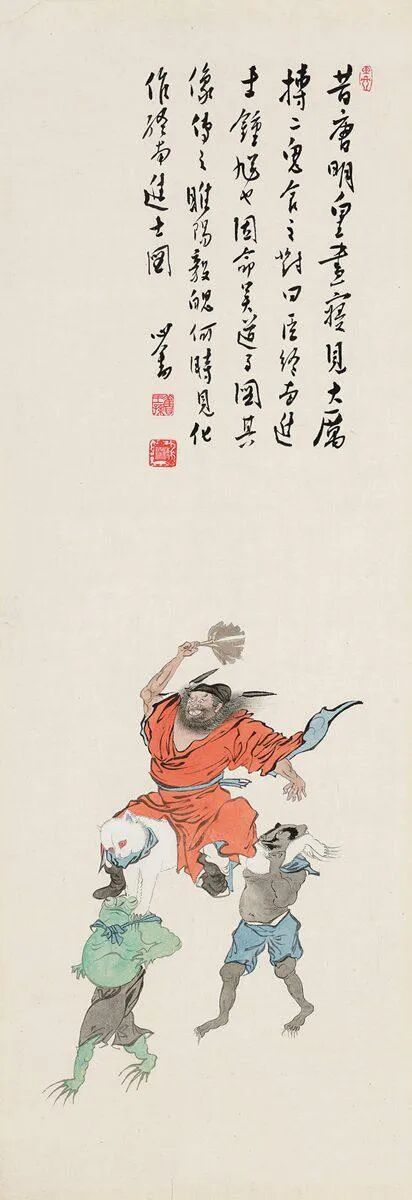 昔唐明皇晝寢見大厲
搏二鬼食之對曰臣終南進
士鍾馗也因命吳道子圖其
像傳之睢陽毅魄何時見化
作終南進士圖 心畬